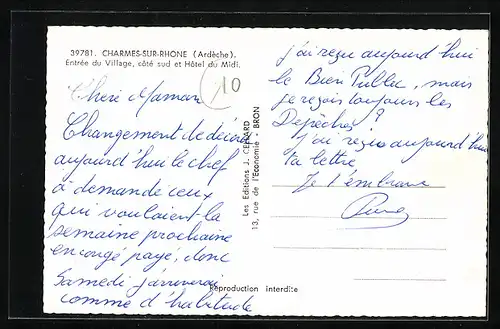 39781. CHARMES-SUR-RHONE (Ardèche).
Entrée du Village, côté sud et Hôtel du Midi.
10
Cheri Maman
Changement de décision
aujourd'hui le chef
a demandé ceux
qui voulaient la
semaine prochaine
en congé payé, donc
Samedi j'arriverai
comme d'habitude
Les Editions J. CELLARD
13, rue de l'Economie - BRON
j'ai reçu aujourd'hui
le Bien Public, mais
je reçois toujours les
Depêches ?
j'ai reçu aujourd'hui
ta lettre
Je t'embrasse
Reproduction interdite